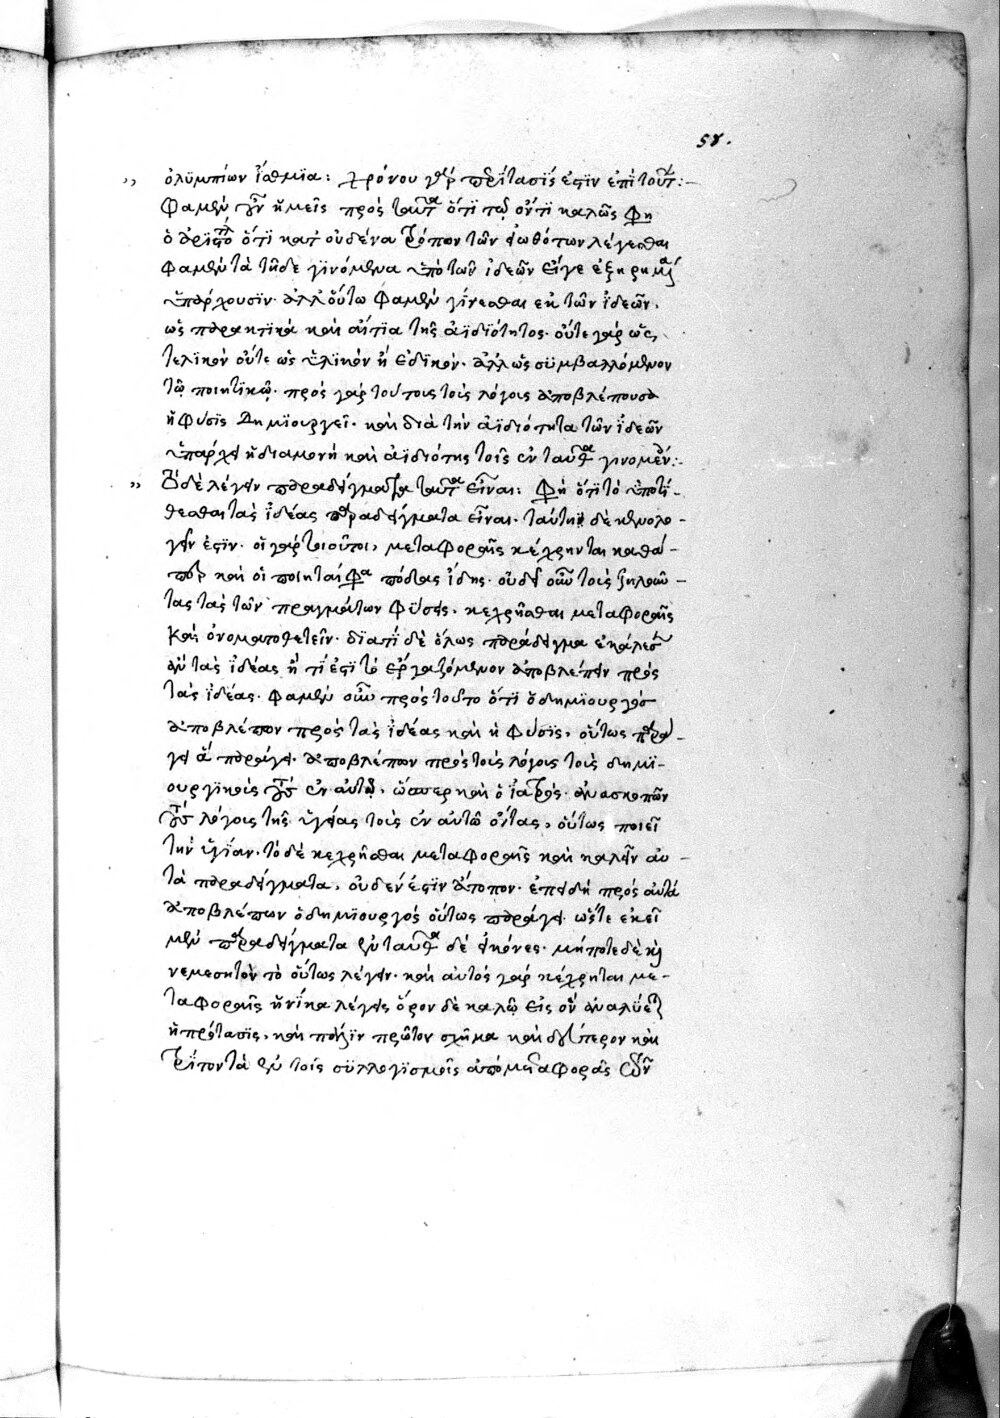 58.
,, ὀλϋμπίων ἴσθμϊα: χρόνου γὰρ παρέκτασίς ἐστϊν ἐπὶ τούτ:-
Φαμὲν οὖν ἡμεῖς πρὸς ταῦτα ὅτι τῷ ὄντϊ καλῶς φη
ὁ ἀριστο ὅτϊ κατ οὐδένα τρόπον τῶν εἰωθότων λέγεσθαι
φαμὲν τὰ τῆδε γϊνόμενα ὑπὸ τῶν ἰδεῶν εἴγε ἐξηρημέ
ὑπάρχουσϊν. ἀλλ οὕτω φαμὲν γίνεσθαι ἐκ τῶν ἰδεῶν,
ὡς παρακτϊκὰ καὶ αἴτϊα τῆς ἀϊδϊότητος. οὔτε γὰρ ὡς,
τελϊκὸν οὔτε ὡς ὑλϊκὸν ἢ εἰδϊκὸν. ἀλλ ὡς σϋμβαλλόμενον
τῶ ποιητϊκῶ. πρὸς γὰρ τούτοις τοῖς λόγοις ἀποβλέπουσα
ἡ φύσϊς δημϊουργεῖ. καὶ διὰ τὴν ἀϊδιότητα τῶν ἰδεῶν
ὑπάρχει ἡ διαμονὴ καὶ ἀϊδιότης τοῖς ἐνταῦθα γινομέν:-
,, Τὸ δὲ λέγειν παραδείγματα ταῦτα εἶναι: Φη ὅτϊ τὸ ὑποτί-
θεσθαι τὰς ἰδέας παραδείγματα εἶναι. ταύτηι δὲ κενολο-
γεῖν ἐστϊν. οἱ γὰρ τοιοῦτοι, μεταφοραῖς κέχρηνται καθά-
περ καὶ οἱ ποιηταί φα πόδας ἴδης. οὐ δεῖ οὖν τοῖς ζηλοῦν-
τας τὰς τῶν πραγμάτων φύσεις, κεχρῆσθαι μεταφοραῖς
καὶ ὀνοματοθετεῖν. διατί δὲ ὅλως παράδειγμα ἐκάλεσ
ἂν τὰς ἰδέας ἢ τί ἐστϊ τὸ ἐργαζόμενον ἀποβλέπειν πρὸς
τὰς ἰδέας. φαμὲν οὖν πρὸς τοῦτο ὅτϊ ὁ δημϊουργὸς
ἀποβλέπων πρὸς τὰς ἰδέας καὶ ἡ φύσϊς, οὕτως παρά-
γει ἃ παράγει. ἀποβλέπων πρὸς τοὺς λόγους τοὺς δημϊ-
ουργϊκοὺς τοὺς ἐν αὐτῷ, ὥσπερ καὶ ὁ ἰατρὸς. ἀνασκοπῶν
τοὺς λόγοις τῆς ὑγείας τοὺς ἐν αὐτῶ ὄντας, οὕτως ποιεῖ
τὴν ὑγίαν. τὸ δὲ κεχρῆσθαι μεταφοραῖς καὶ καλεῖν αὐ-
τὰ παραδείγματα, οὐδέν ἐστϊν ἄτοπον. ἐπειδὴ πρὸς αὐτὰ
ἀποβλέπων ὁ δημϊουργὸς οὕτως παράγει. ὥστε ἐκεῖ
μὲν παραδείγματα ἐνταῦθα δὲ εἰκόνες. μήποτε δὲ καὶ
νεμεσητὸν τὸ οὕτως λέγειν. καὶ αὐτὸς γὰρ κέχρηται με-
ταφοραῖς ἡνίκα λέγει ὅρον δὲ καλῶ εἰς ὃν ἀναλύετ
ἡ πρότασϊς, καὶ πάλϊν πρῶτον σχῆμα καὶ δεύτερον καὶ
τρίτον τὰ ἐν τοῖς σϋλλογϊσμοῖς ἀπὸ μεταφορᾶς τῶν